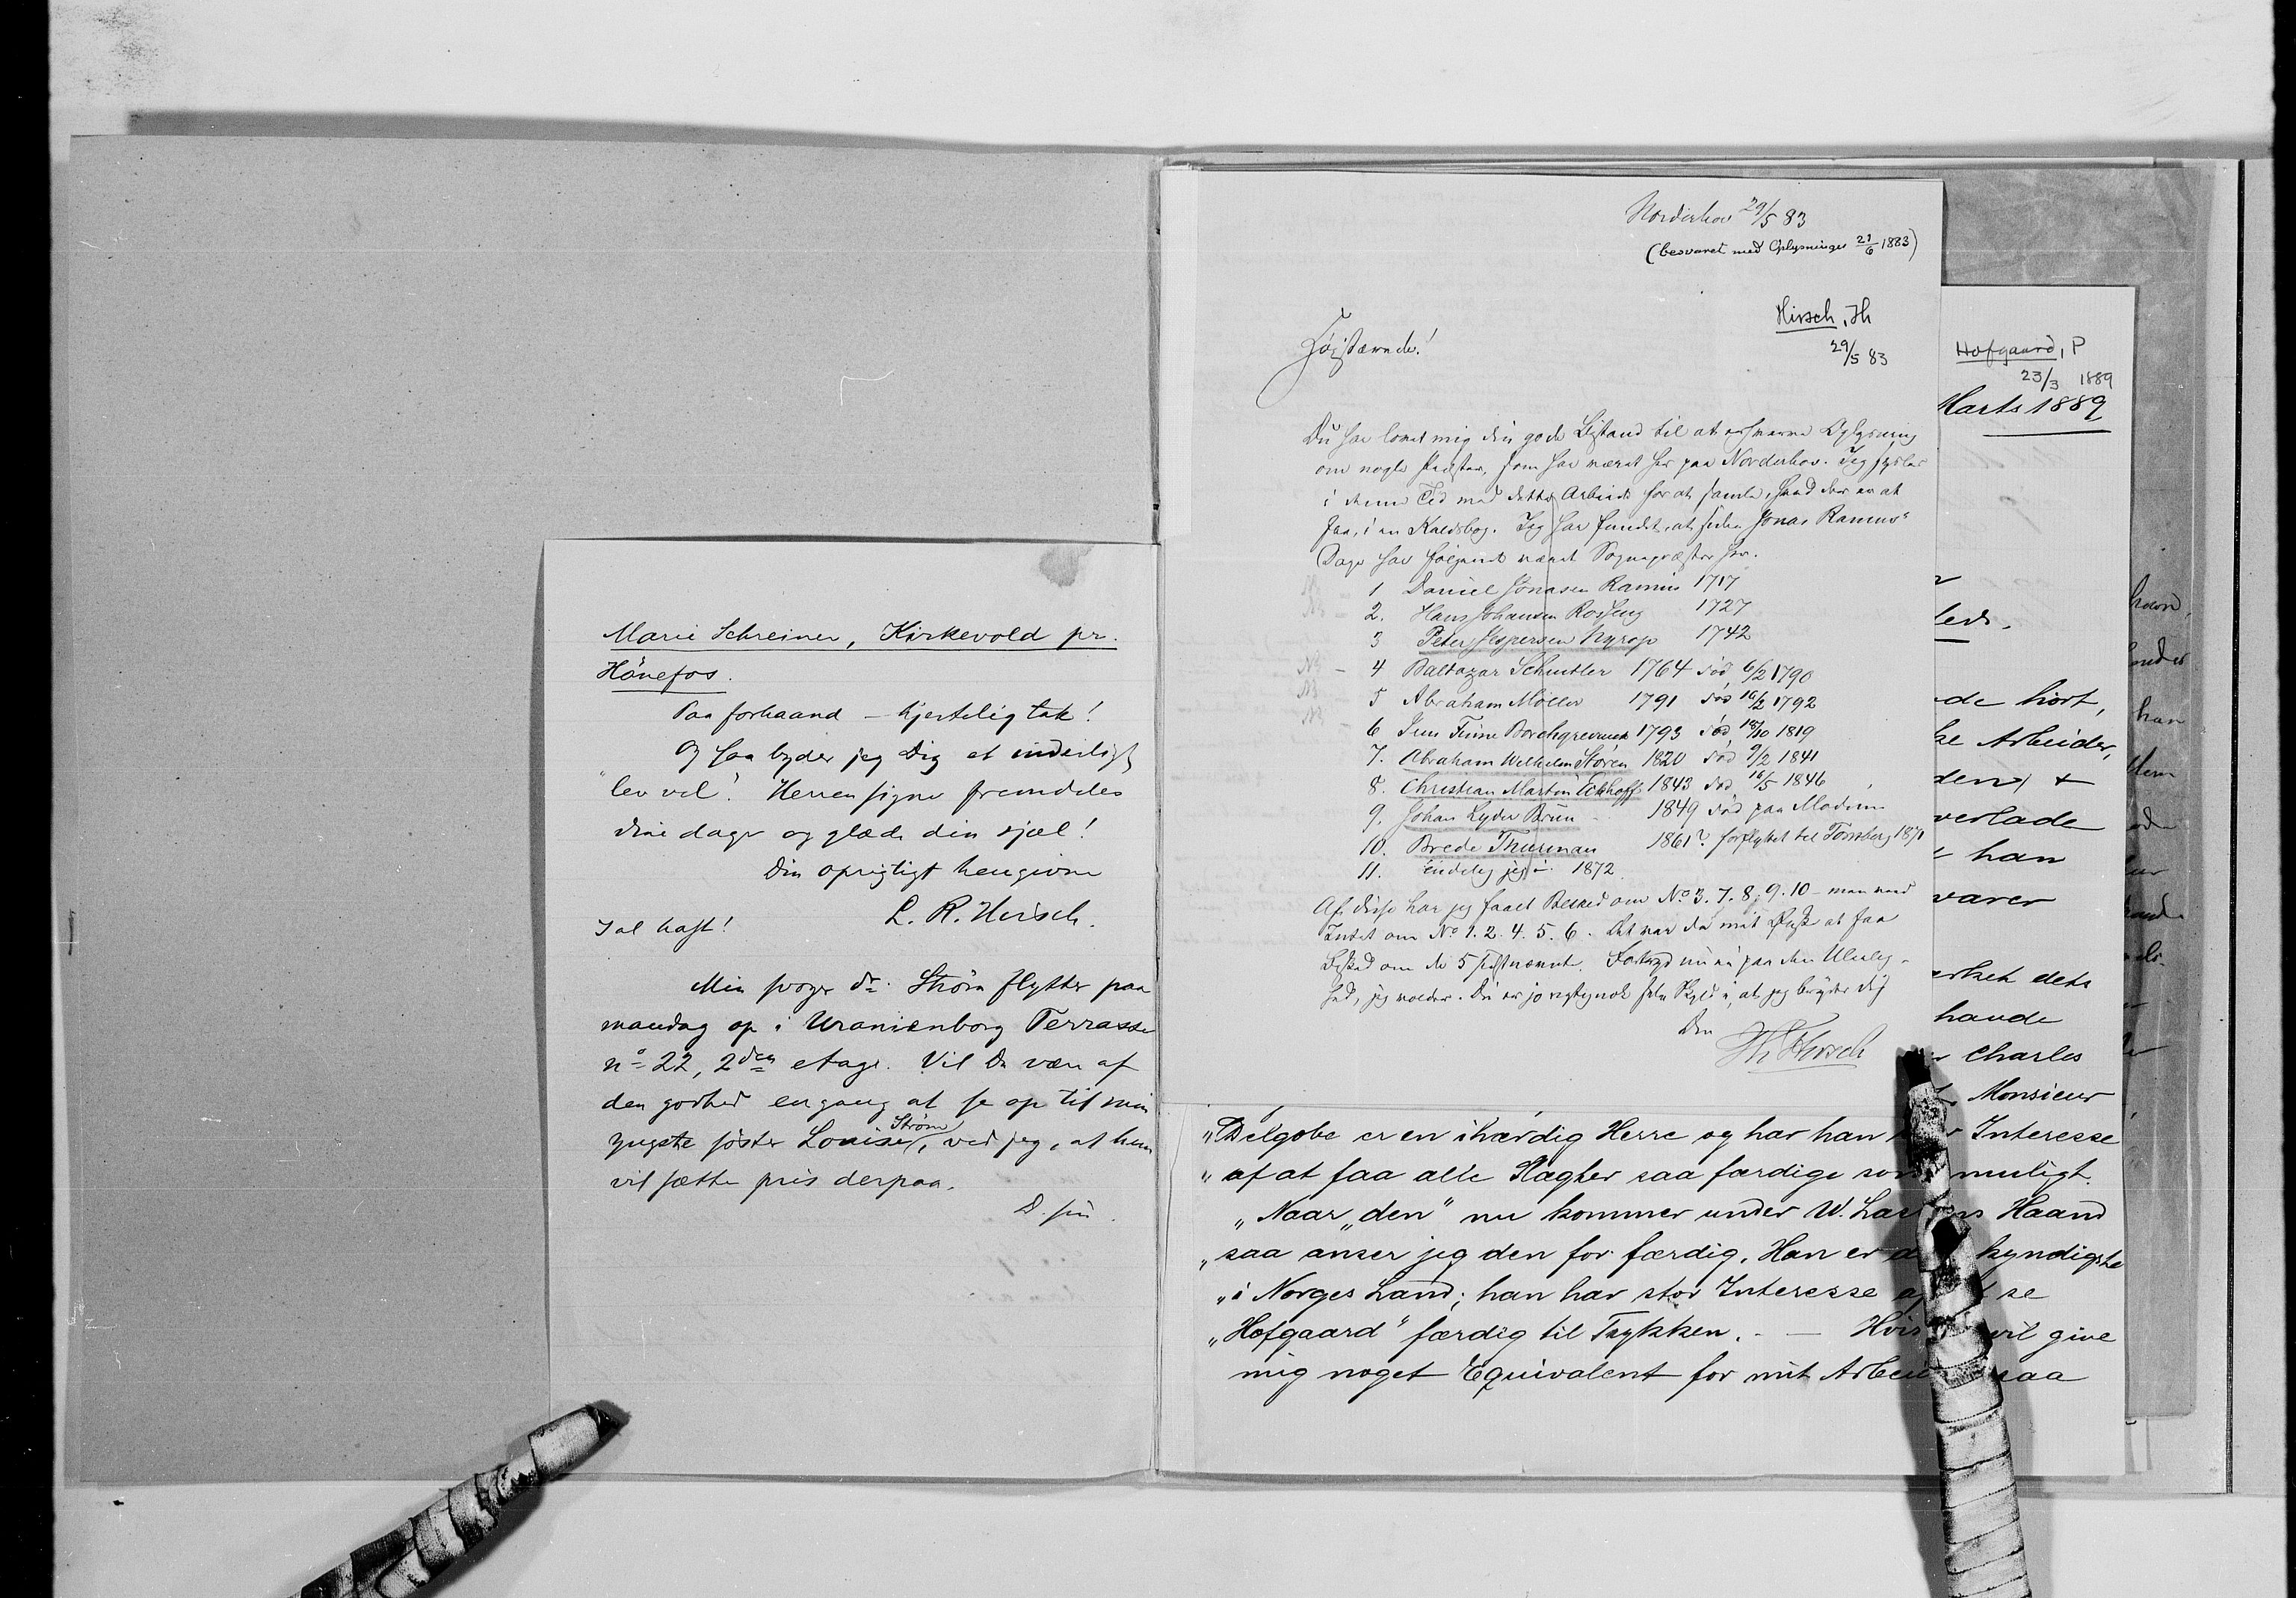 Marie Schreiner, Kirkevold pr.
Hönefos.
Paa forhaand – hjertelig tak!
Og saa byder jeg Dig et inderligt
"lev vel"! Herren signe fremdeles
dine dage og glæde din sjæl!
Din oprigtigt hengivne
L. R. Hirsch.
I al hast!
Min svoger dr. Strøm flytter paa
mandag op i Uranienborg Terrasse
nº 22, 2den etage. Vil Du være af
den godhed engang at se op til min
yngste söster Louise Strøm, ved jeg, at hun
vil sætte pris derpaa.
D. s.
Norderhov 29/5 83
(besvaret med Oplysninger 21/6 1883)
Hirsch, Th
29/5 83
Højstærede!
Du har lovet mig din gode Bistand til at erhverve Oplysning
om nogle Præster, som har været her paa Norderhov. Jeg sysler
i denne Tid med dette Arbeide for at samle, hvad der er at
faa, i en Kaldsbog. Jeg har fundet, at siden Jonas Ramus'
Dage har følgende været Sognepræster her.
1 Daniel Jonasen Ramus 1717
2. Hans Johansen 1727
3 Peter Jespersen Nyrop 1742
4 Baltazar Schnitler 1764 død 6/2 1790
5 Abraham Møller 1791 død 16/2 1792
6 Iver Finne Borchgrevink 1793 død 18/10 1819
7. Abraham Wilhelm Støren 1820 død 9/2 1841
8. Christian Martin Eckhoff 1843 død 16/5 1846
9. Johan Lyder Brun – 1849 død paa Modum
10. Brede Thurman 1861? forflyttet til Tønsberg 1871
11. Endelig jeg i 1872
Af disse har jeg faaet Besked om Nº 3. 7. 8. 9. 10 – men
Intet om Nº 1. 2. 4. 5. 6. Det var da mit Ønske at faa
Besked om de 5 sidstnævnte. Fortryd nu ei paa den Uleilig-
hed, jeg volder. Du er jo rigtignok selv Skyld i, at jeg bryder dig
Din
Th Hirsch
Hofgaard, P
23/3 1889
Marts 1889
leds.
de hört,
ke Arbeider,
den) &
verlade
han
varer
rket dets
havde
Charles
Monsieur
"Delgobe er en ihærdig Herre og har han Interesse
"af at faa alle Slagter saa færdige som muligt.
"Naar "den" nu kommer under W. Lassens Haand
"saa anser jeg den for færdig. Han er den kyndigste
"i Norges Land; han har stor Interesse af at se
"Hofgaard" færdig til Trykken. – – Hvis vil give
mig noget Equivalent for mit Arbeide saa